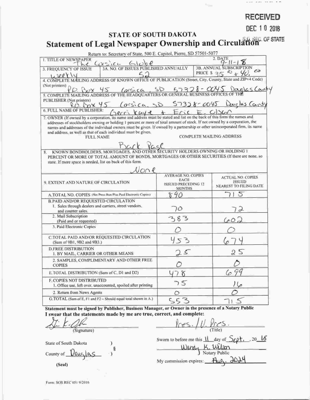 RECEIVED
DEC 10 2018
OF STATE
STATE OF SOUTH DAKOTA
Statement of Legal Newspaper Ownership and Circulation
Return to: Secretary of State, 500 E. Capitol, Pierre, SD 57501-5077
1. TITLE OF NEWSPAPER
2. DATE
The Corsica Globe
9-11-18
3. FREQUENCY OF ISSUE
3A. NO. OF ISSUES PUBLISHED ANNUALLY
3B. ANNUAL SUBSCRIPTION
Weekly
52
PRICE $
4. COMPLETE MAILING ADDRESS OF KNOWN OFFICE OF PUBLICATION (Street, City, County, State and ZIP+4 Code)
(Not printers)
PO Box 45 Corsica SD 57328-0045 Douglas County
5. COMPLETE MAILING ADDRESS OF THE HEADQUARTERS OR GENERAL BUSINESS OFFICES OF THE
PUBLISHER (Not printer)
PO Box 45 Corsica, SD 57328-0045 Douglas County
6. FULL NAME OF PUBLISHER:
7. OWNER (If owned by a corporation, its name and address must be stated and list on the back of this form the names and
addresses of stockholders owning or holding 1 percent or more of total amount of stock. If not owned by a corporation, the
names and addresses of the individual owners must be given. If owned by a partnership or other unincorporated firm, its name
and address, as well as that of each individual must be given.
FULL NAME
COMPLETE MAILING ADDRESS
Back Page
8. KNOWN BONDHOLDERS, MORTGAGEES, AND OTHER SECURITY HOLDERS OWNING OR HOLDING 1
PERCENT OR MORE OF TOTAL AMOUNT OF BONDS, MORTGAGES OR OTHER SECURITIES (If there are none, so
state. If more space is needed, list on back of this form
None
9. EXTENT AND NATURE OF CIRCULATION
AVERAGE NO. COPIES
EACH
ISSUED PRECEDING 12
MONTHS
ACTUAL NO. COPIES
ISSUED
NEAREST TO FILING DATE
A. TOTAL NO. COPIES
715
B. PAID AND/OR REQUESTED CIRCULATION
1. Sales through dealers and carriers, street vendors,
and counter sales
70
72
2. Mail Subscription
(Paid and or requested)
383
602
3. Paid Electronic Copies
0
0
C. TOTAL PAID AND/OR REQUESTED CIRCULATION
(Sum of 9B1, 9B2 and 9B3.)
453
674
D. FREE DISTRIBUTION
1. BY MAIL, CARRIER OR OTHER MEANS
25
25
2. SAMPLES, COMPLIMENTARY AND OTHER FREE
COPIES
0
0
E. TOTAL DISTRIBUTION (Sum of C, D1 and D2)
478
699
F. COPIES NOT DISTRIBUTED
1. Office use, left over, unaccounted, spoiled after printing
75
16
2. Return from News Agents
0
0
G. TOTAL (Sum of E, F1 and F2 - Should equal total shown in A.)
553
715
Statement must be signed by Publisher, Business Manager, or Owner in the presence of a Notary Public
I swear that the statements made by me are true, correct, and complete:
Pres./V. Pres.
(Signature)
(Title)
State of South Dakota )
County of Douglas )
(Seal)
Sworn to before me this 11 day of Sept. 20 18
Notary Public
My commission expires: Aug. 2024